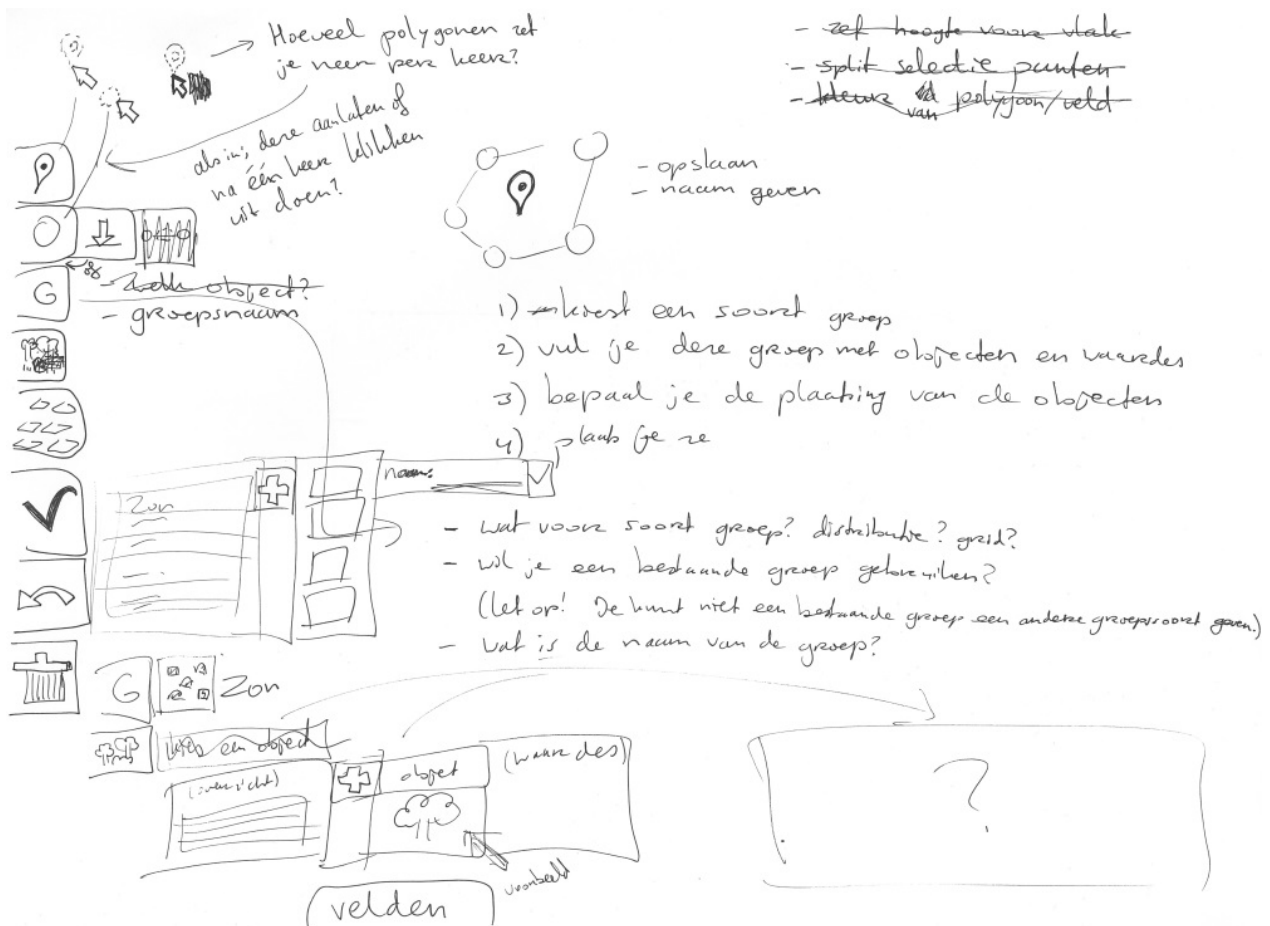 Hoeveel polygonen zet
je neen per keer?
als in; deze aanlaten of
na één keer klikken
uit doen?
- zet hoogte voor vlak
- split selectie punten
- kleur van polygoon/veld
- opslaan
- naam geven
G
of
- welk object?
- groepsnaam
1) kiest een soort groep
2) vul je deze groep met objecten en waardes
3) bepaal je de plaatsing van de objecten
4) plaats je ze
naam:
Zon
- wat voor soort groep? distributie? grid?
- wil je een bestaande groep gebruiken?
(let op! De kunt niet een bestaande groep een andere groepsoort geven.)
- wat is de naam van de groep?
G
Zon
kies een object
(overzicht)
object
(waardes)
?
voorbeeld
velden